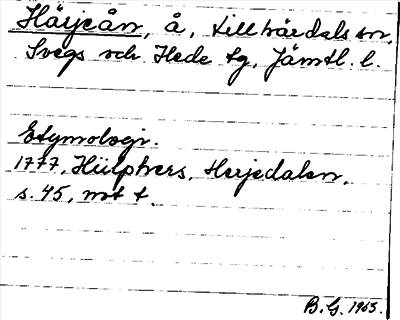 Härjeån, å, Lillhärdals sn,
Svegs och Hede tg, Jämtl. l.
Etymologi.
1777, Hülphers, Herjedalen,
s. 45, mt t.
B. G. 1963.